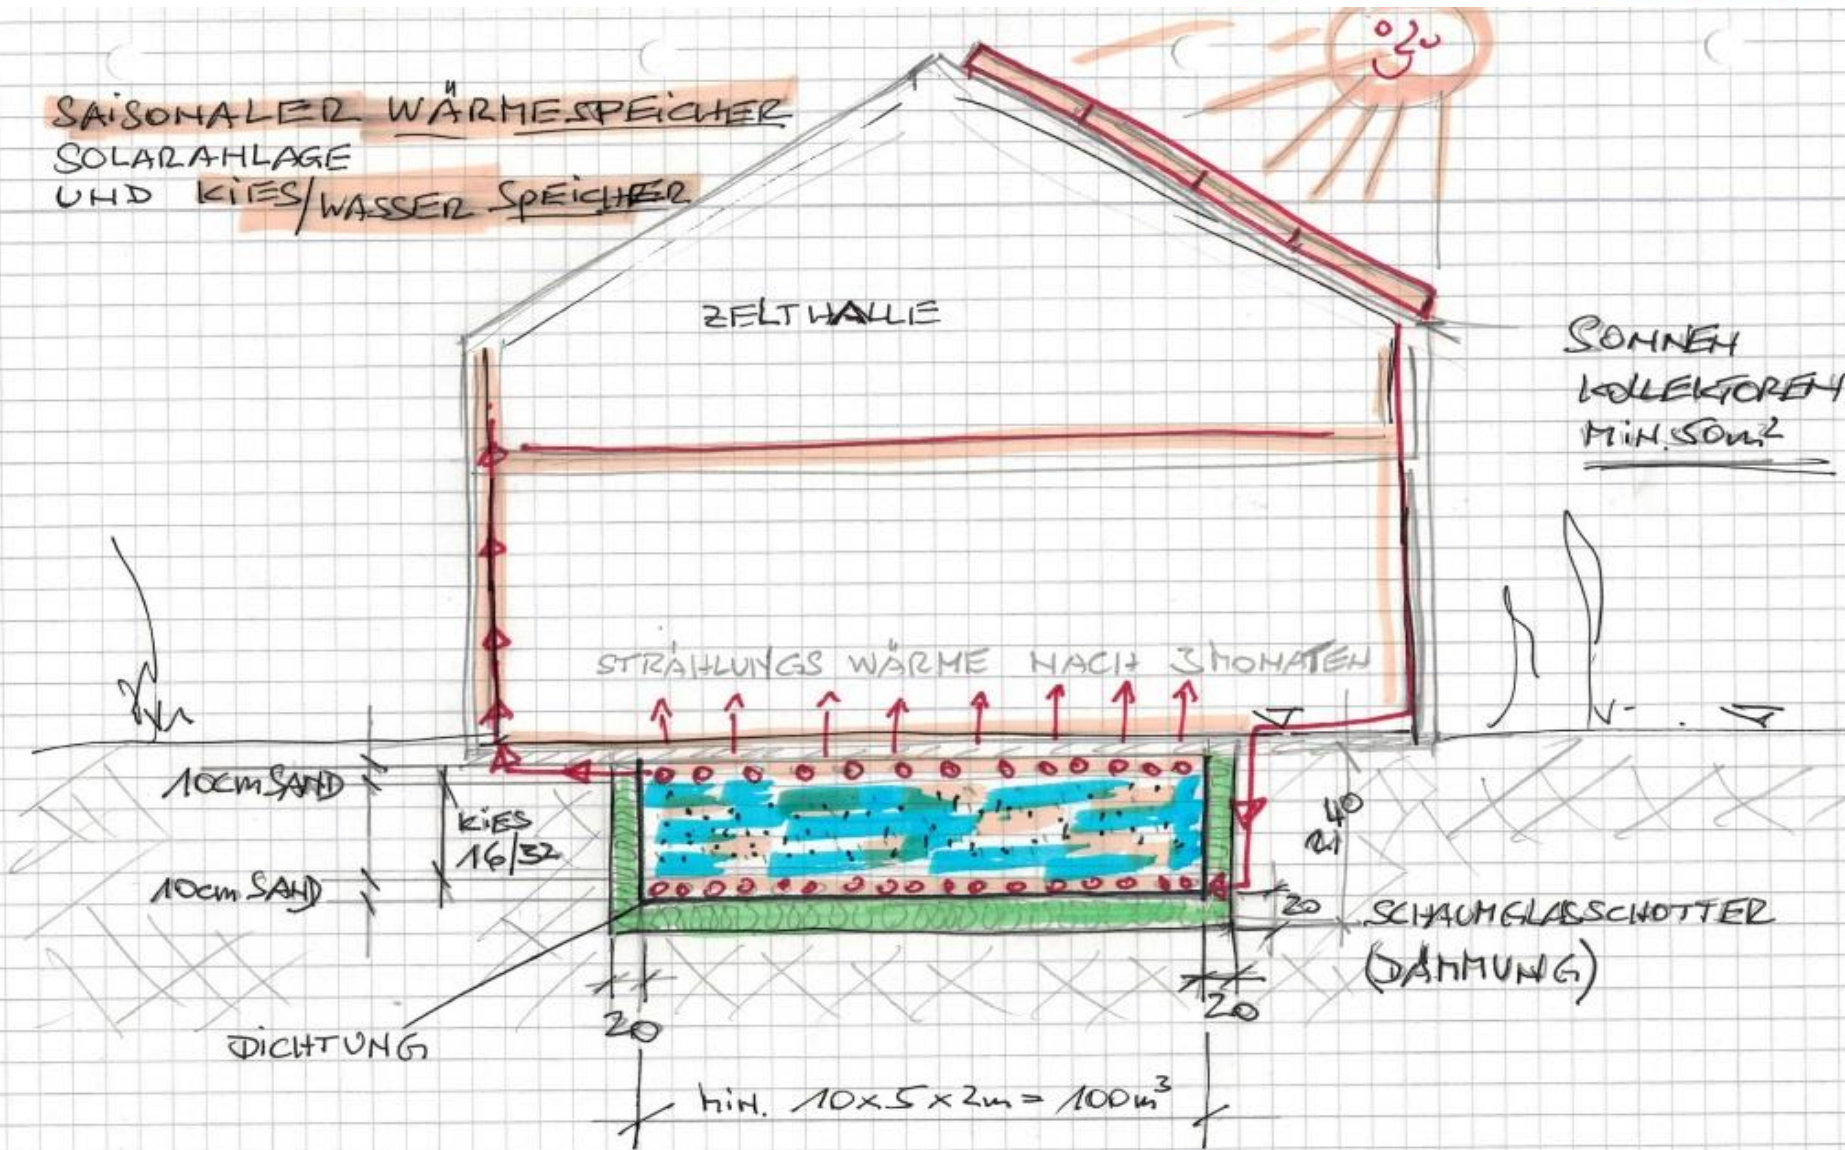 SAISONALER WÄRMESPEICHER
SOLARANLAGE
UND KIES/WASSER SPEICHER
ZELTHALLE
SONNEN
KOLLEKTOREN
MIN. 50m²
STRAHLUNGSWÄRME NACH 3 MONATEN
10cm SAND
KIES
16/32
10cm SAND
20
SCHAUMGLASSCHOTTER
(DÄMMUNG)
20
20
DICHTUNG
min. 10x5x2m = 100m³